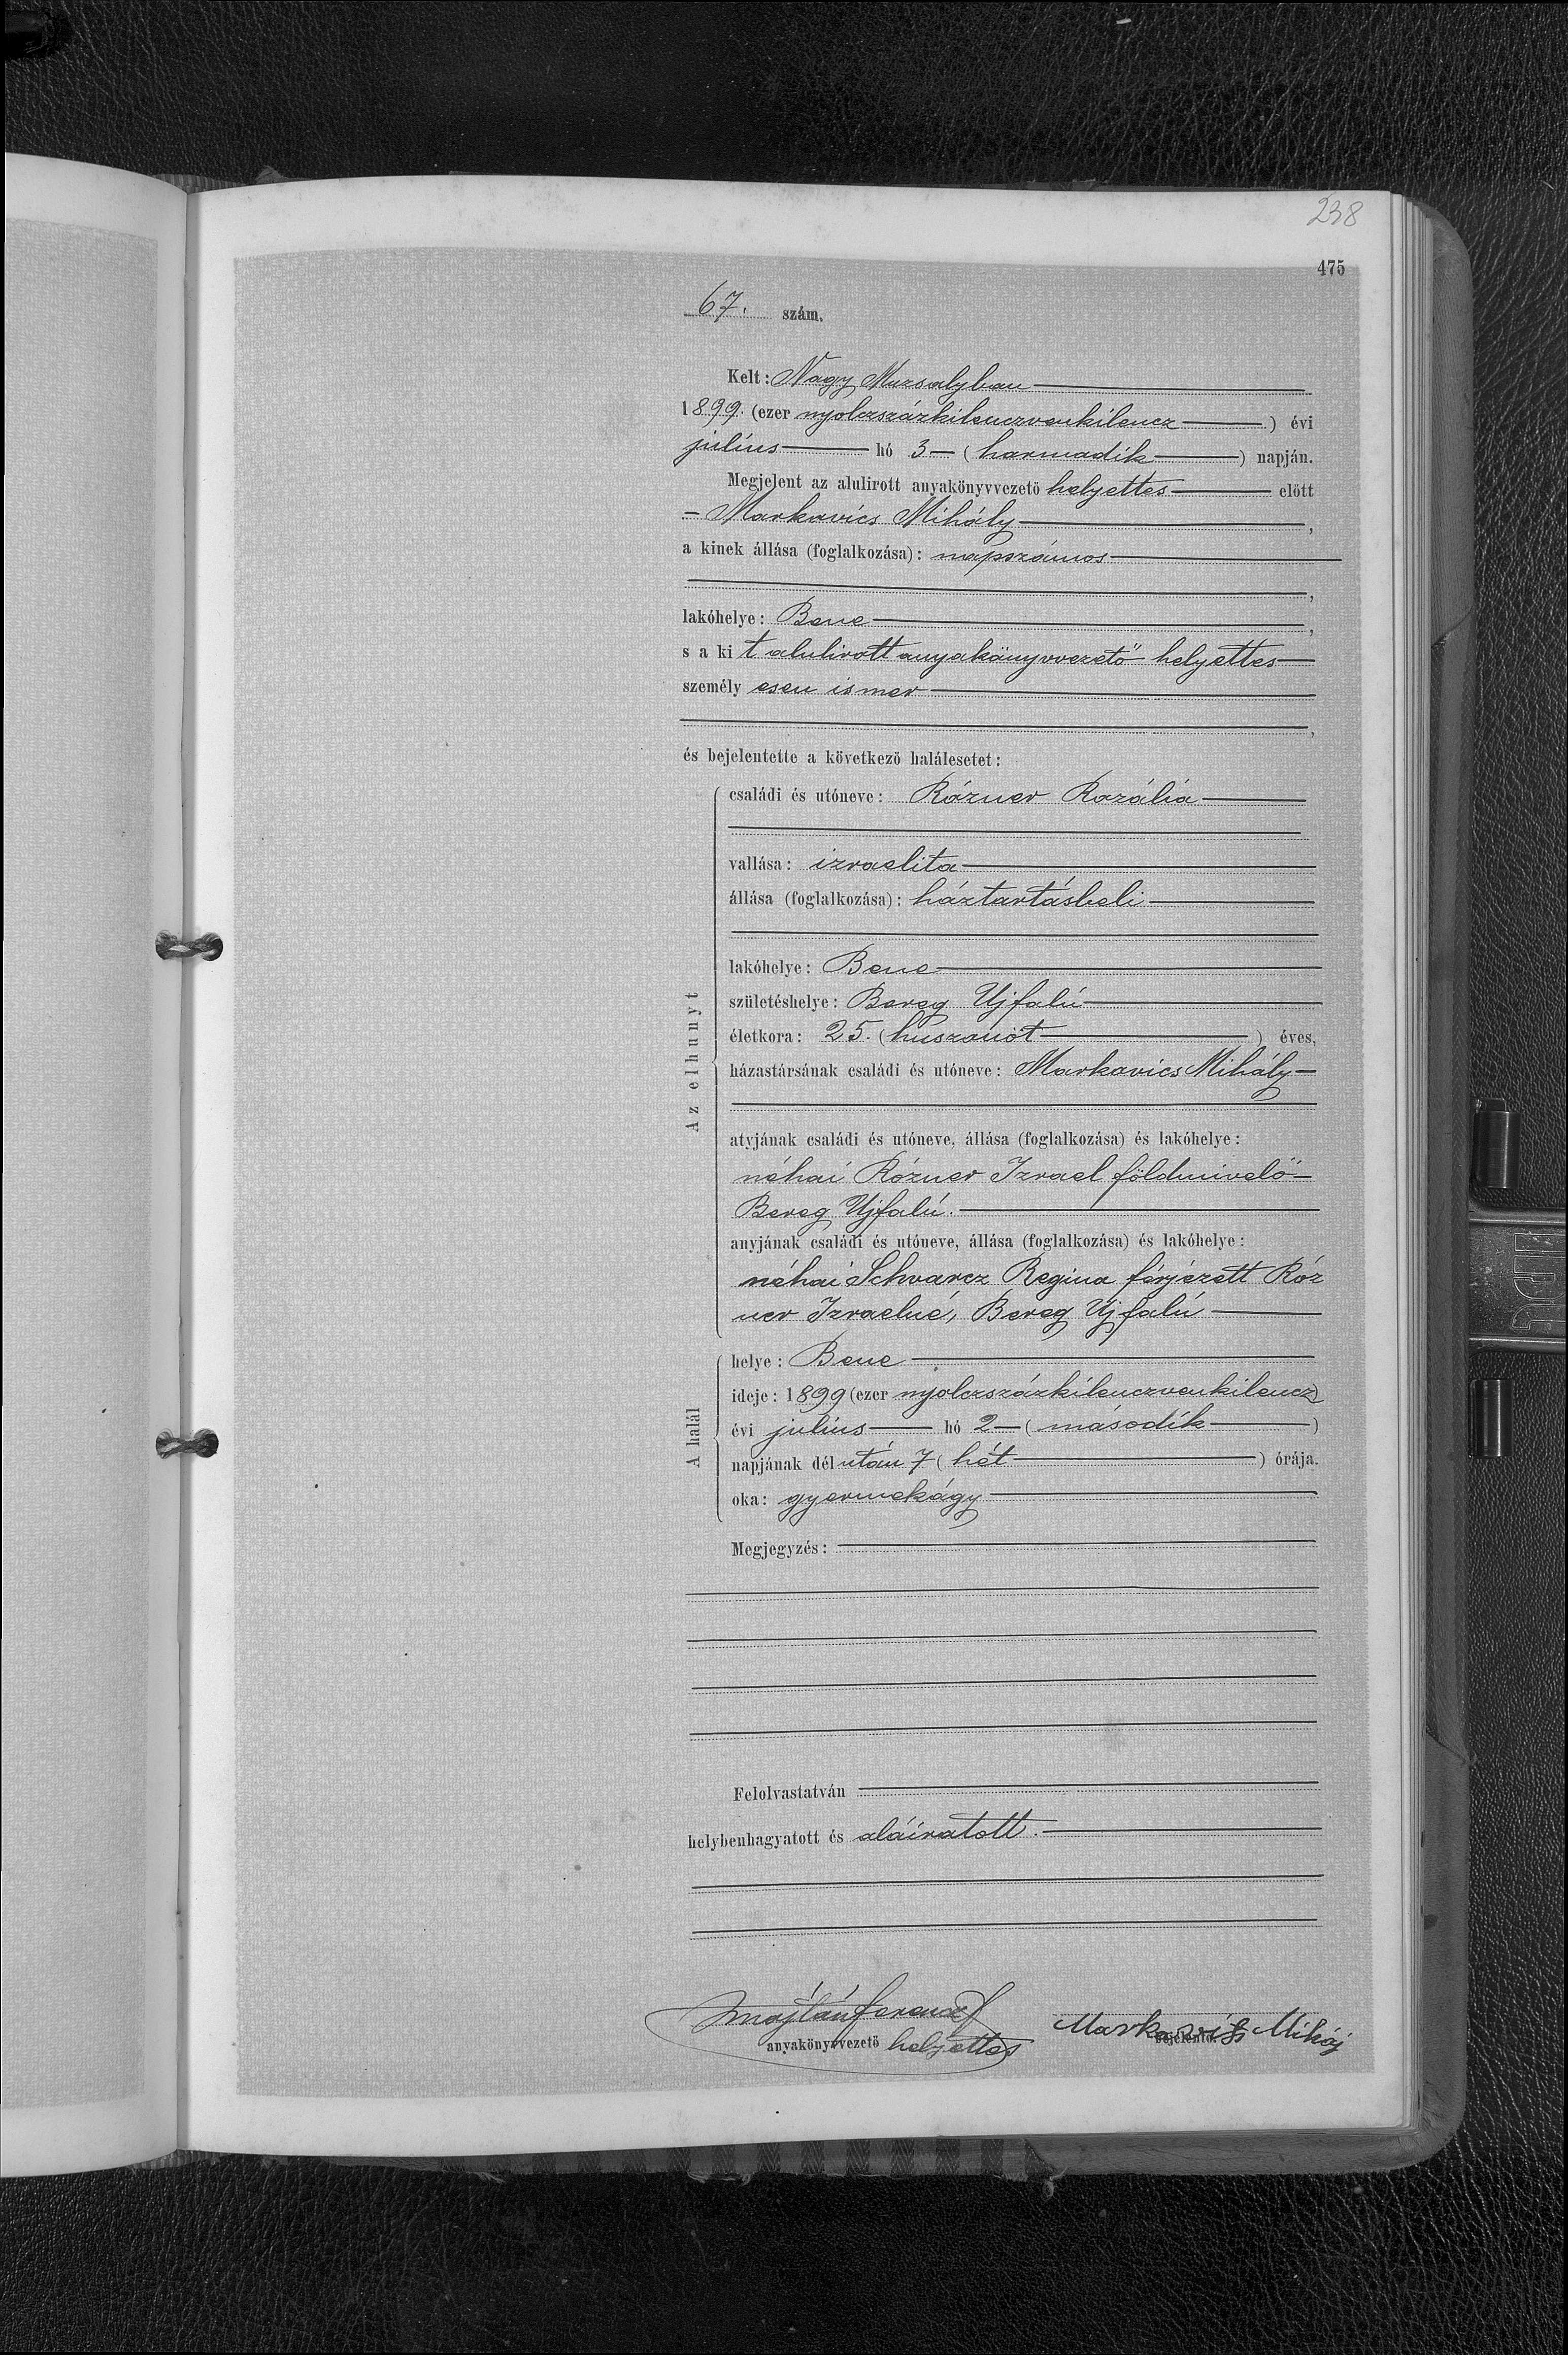 238
475
67. szám.
Kelt: Nagy Muzsalyban
1899. (ezer nyolczszázkilenczvenkilencz) évi
július hó 3 (harmadik) napján.
Megjelent az alulirott anyakönyvvezető helyettes előtt
Markavics Mihály,
a kinek állása (foglalkozása): napszámos
,
lakóhelye: Bene,
s a kit alulirott anyakönyvvezető helyettes
személyesen ismer
,
és bejelentette a következő halálesetet:
Az elhunyt
családi és utóneve: Rózner Rozália
vallása: izraelita
állása (foglalkozása): háztartásbeli
lakóhelye: Bene
születéshelye: Bereg Ujfalú
életkora: 25. (huszonöt) éves,
házastársának családi és utóneve: Markavics Mihály
atyjának családi és utóneve, állása (foglalkozása) és lakóhelye:
néhai Rózner Izrael földmivelő
Bereg Ujfalú.
anyjának családi és utóneve, állása (foglalkozása) és lakóhelye:
néhai Schvarcz Regina férjezett Róz
ner Izraelné, Bereg Ujfalú
A halál
helye: Bene
ideje: 1899 (ezer nyolczszázkilenczvenkilencz)
évi július hó 2 (második)
napjának délután 7 (hét) órája.
oka: gyermekágy
Megjegyzés:
Felolvastatván
helybenhagyatott és aláiratott.
Majlán Ferencz Markavits Miháj
anyakönyvvezető helyettes bejelentő.